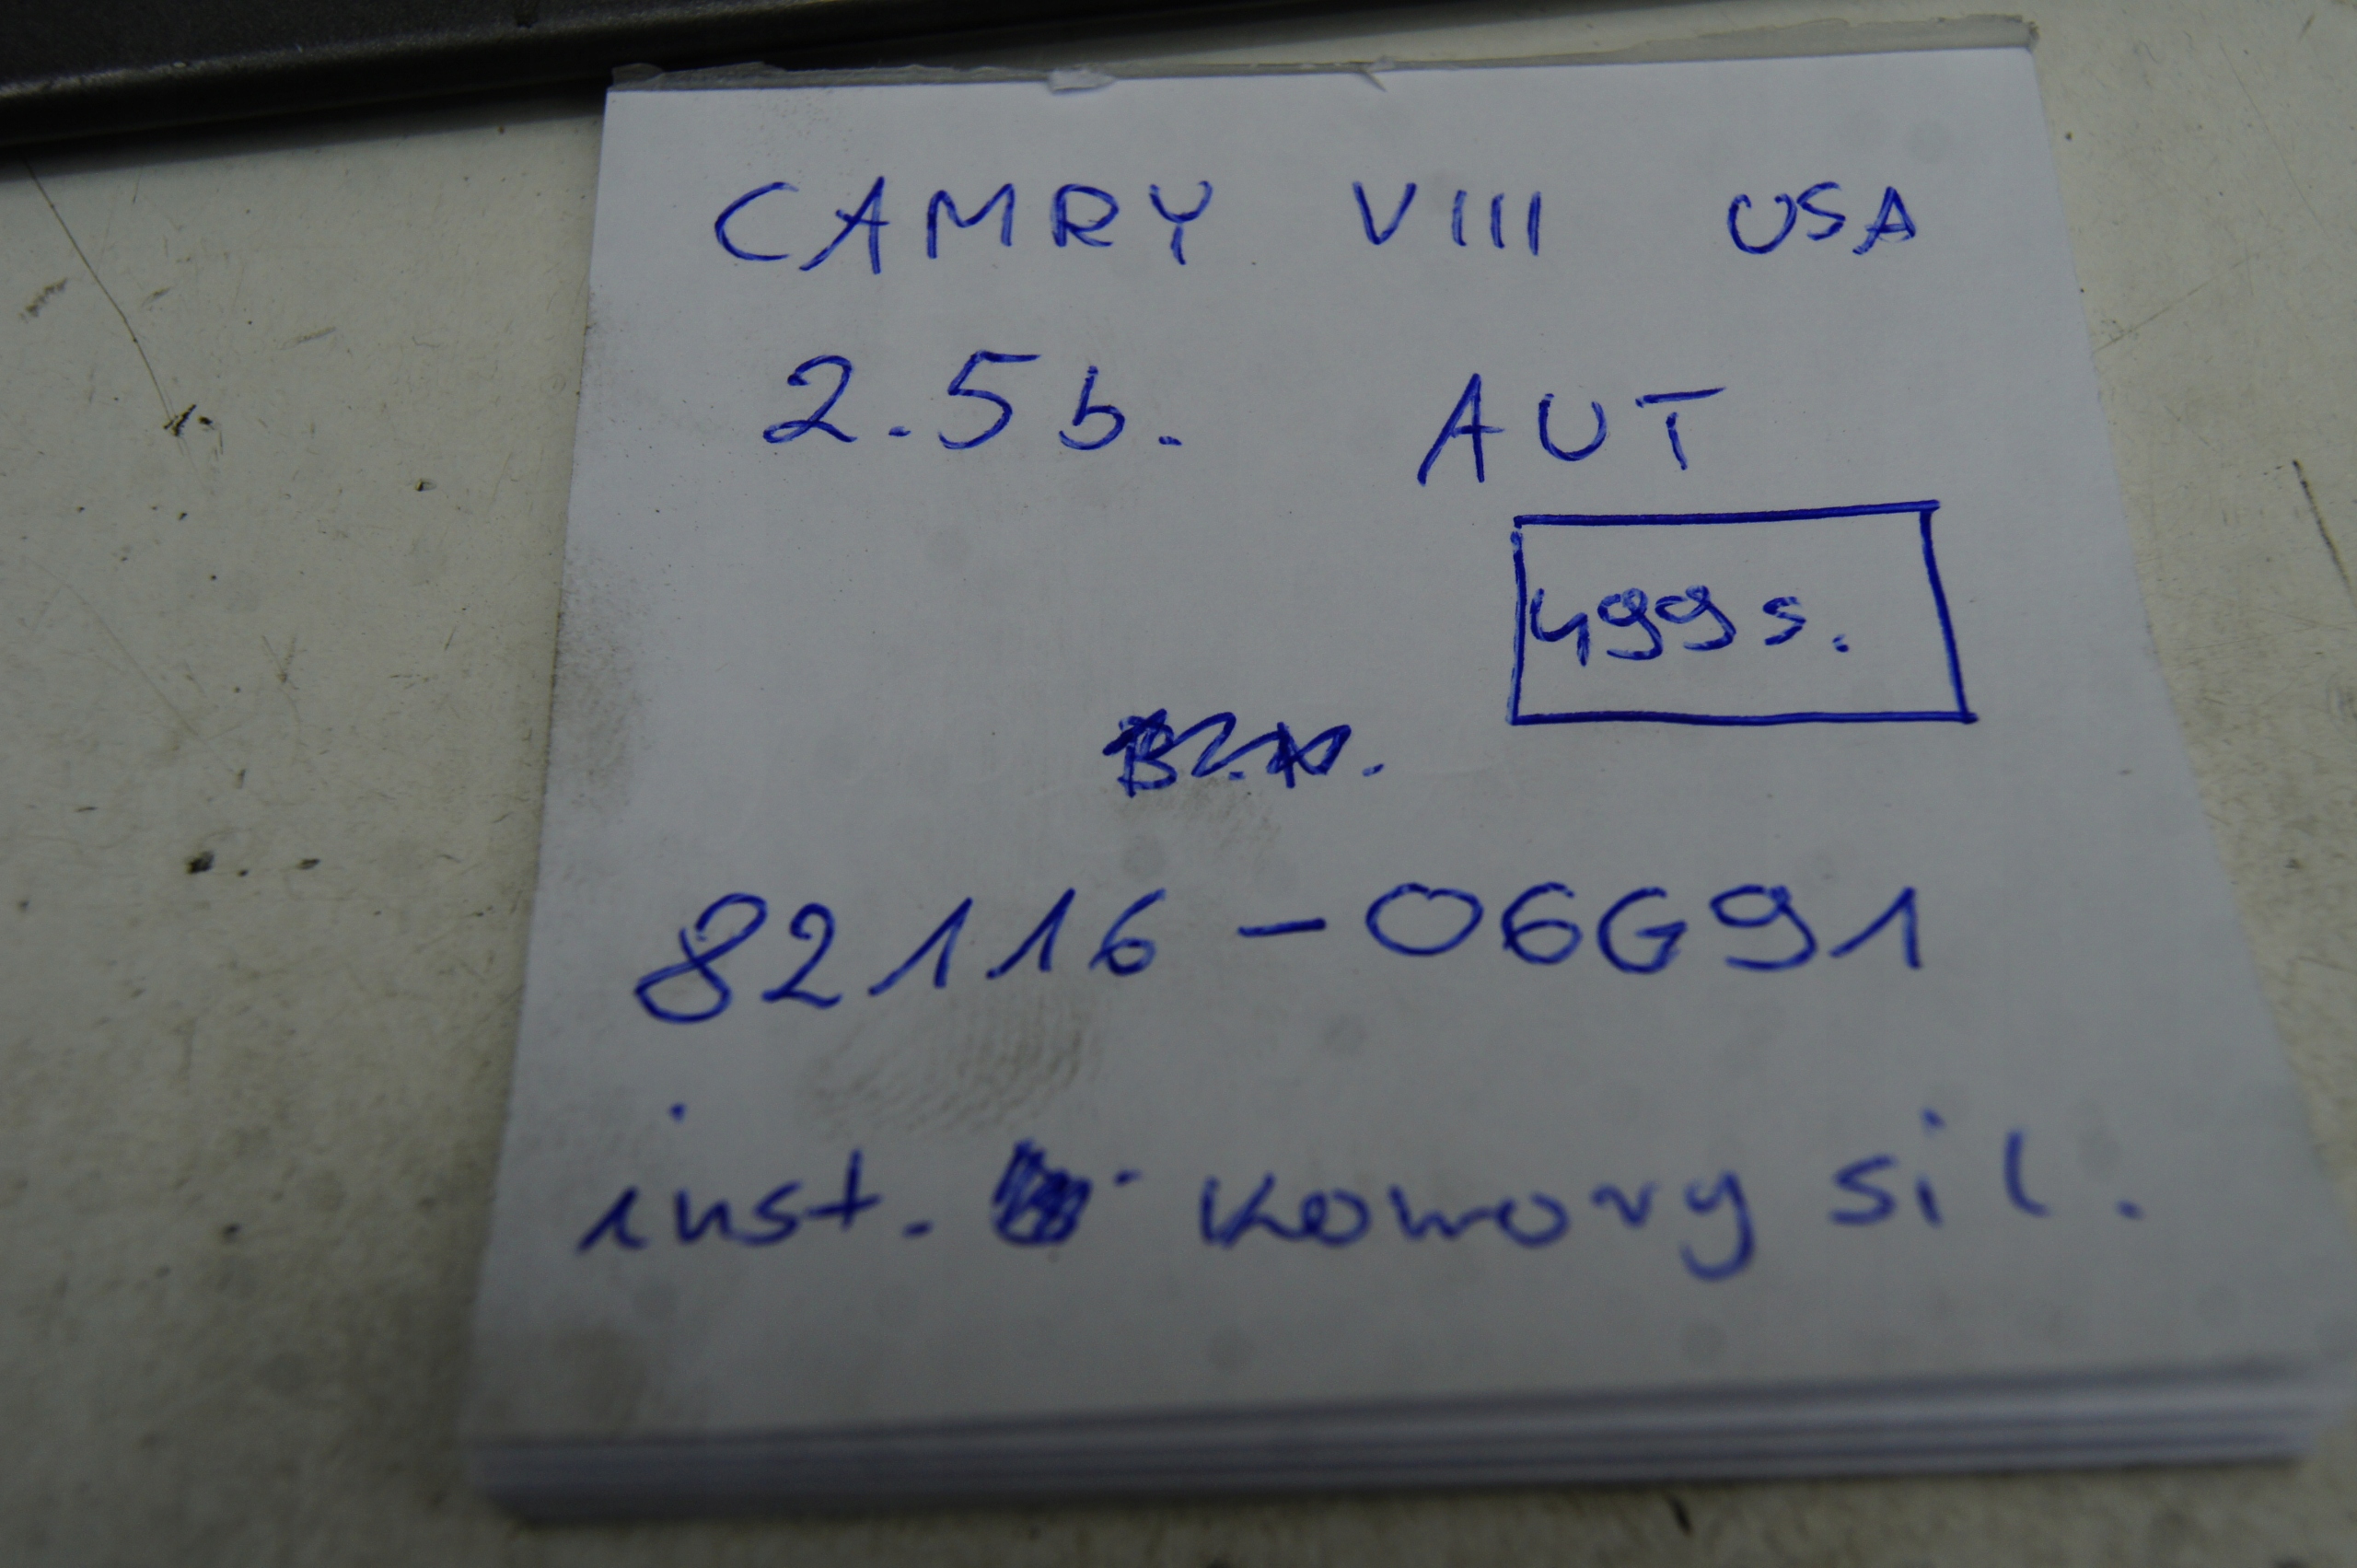 CAMRY VIII USA
2.5 b. AUT
499 s.
82116-06G91
inst. komory sil.